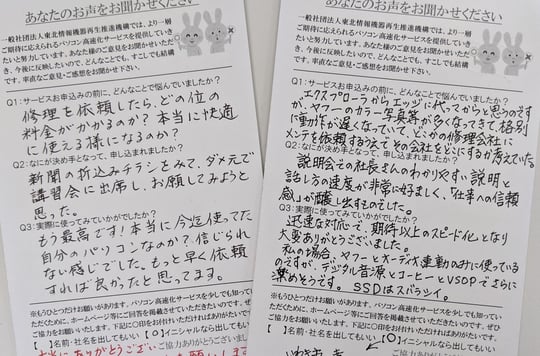 あなたのお声をお聞かせください
一般社団法人東北情報機器再生推進機構では、より一層
ご期待に応えられるパソコン高速化サービスを提供していき
たいと努力しています。あなた様のご意見をお聞かせいただ
き、今後に反映したいので、どんなことでも、すこしでも結構
です、率直なご意見・ご感想をお聞かせ下さい。
Q1:サービスお申込みの前に、どんなことで悩んでいましたか?
修理を依頼したら、どの位の
料金がかかるのか?本当に快適
に使える様になるのか?
Q2:なにが決め手となって、申し込まれましたか?
新聞の折込みチラシをみて、ダメ元で
講習会に出席し、お願してみようと
思った。
Q3:実際に使ってみていかがでしたか?
もう最高です!本当に今迄使ってた
自分のパソコンなのか?信じられ
ない感じでした。もっと早く依頼
すれば良かったと思ってます。
※もうひとつお願いがあります。パソコン高速化サービスを少しでも知ってい
ただくために、ホームページ等にご回答を掲載させていただきたいのです。ぜひ
ご協力をお願いいたします。下記に○印をお付けいただければありがたいです。
【 】名前・社名を出してもいい 【〇】イニシャルなら出してもいい
ご協力ありがとうござい
あなたのお声をお聞かせください
一般社団法人東北情報機器再生推進機構では、より一層
ご期待に応えられるパソコン高速化サービスを提供していき
たいと努力しています。あなた様のご意見をお聞かせいただ
き、今後に反映したいので、どんなことでも、すこしでも結構
です、率直なご意見・ご感想をお聞かせ下さい。
Q1:サービスお申込みの前に、どんなことで悩んでいましたか?
エクスプローラからエッジに代ってからと思うのです
が、ヤフーのカラー写真等が多くなってきて、格別
に動作が遅くなっていて、どこかの修理会社に
メンテを依頼するうえでその会社をどこにするか考えていた。
Q2:なにが決め手となって、申し込まれましたか?
説明会での社長さんのわかりやすい説明と
話し方の速度が非常に好ましく、「仕事への信頼
感」が醸し出ものでした。
Q3:実際に使ってみていかがでしたか?
迅速な対応で、期待以上のスピード化となり
大変ありがとうございました。
私の場合、ヤフーとオーディオ連動のみに使っている
のですが、デジタル音源とコーヒーとVSOPでさらに
楽めそうです。SSDはスバラシイ。
※もうひとつお願いがあります。パソコン高速化サービスを少しでも知ってい
ただくために、ホームページ等にご回答を掲載させていただきたいのです。ぜひ
ご協力をお願いいたします。下記に○印をお付けいただければありがたいです。
【 】名前・社名を出してもいい 【〇】イニシャルなら出してもいい
ご協力ありがとうございます